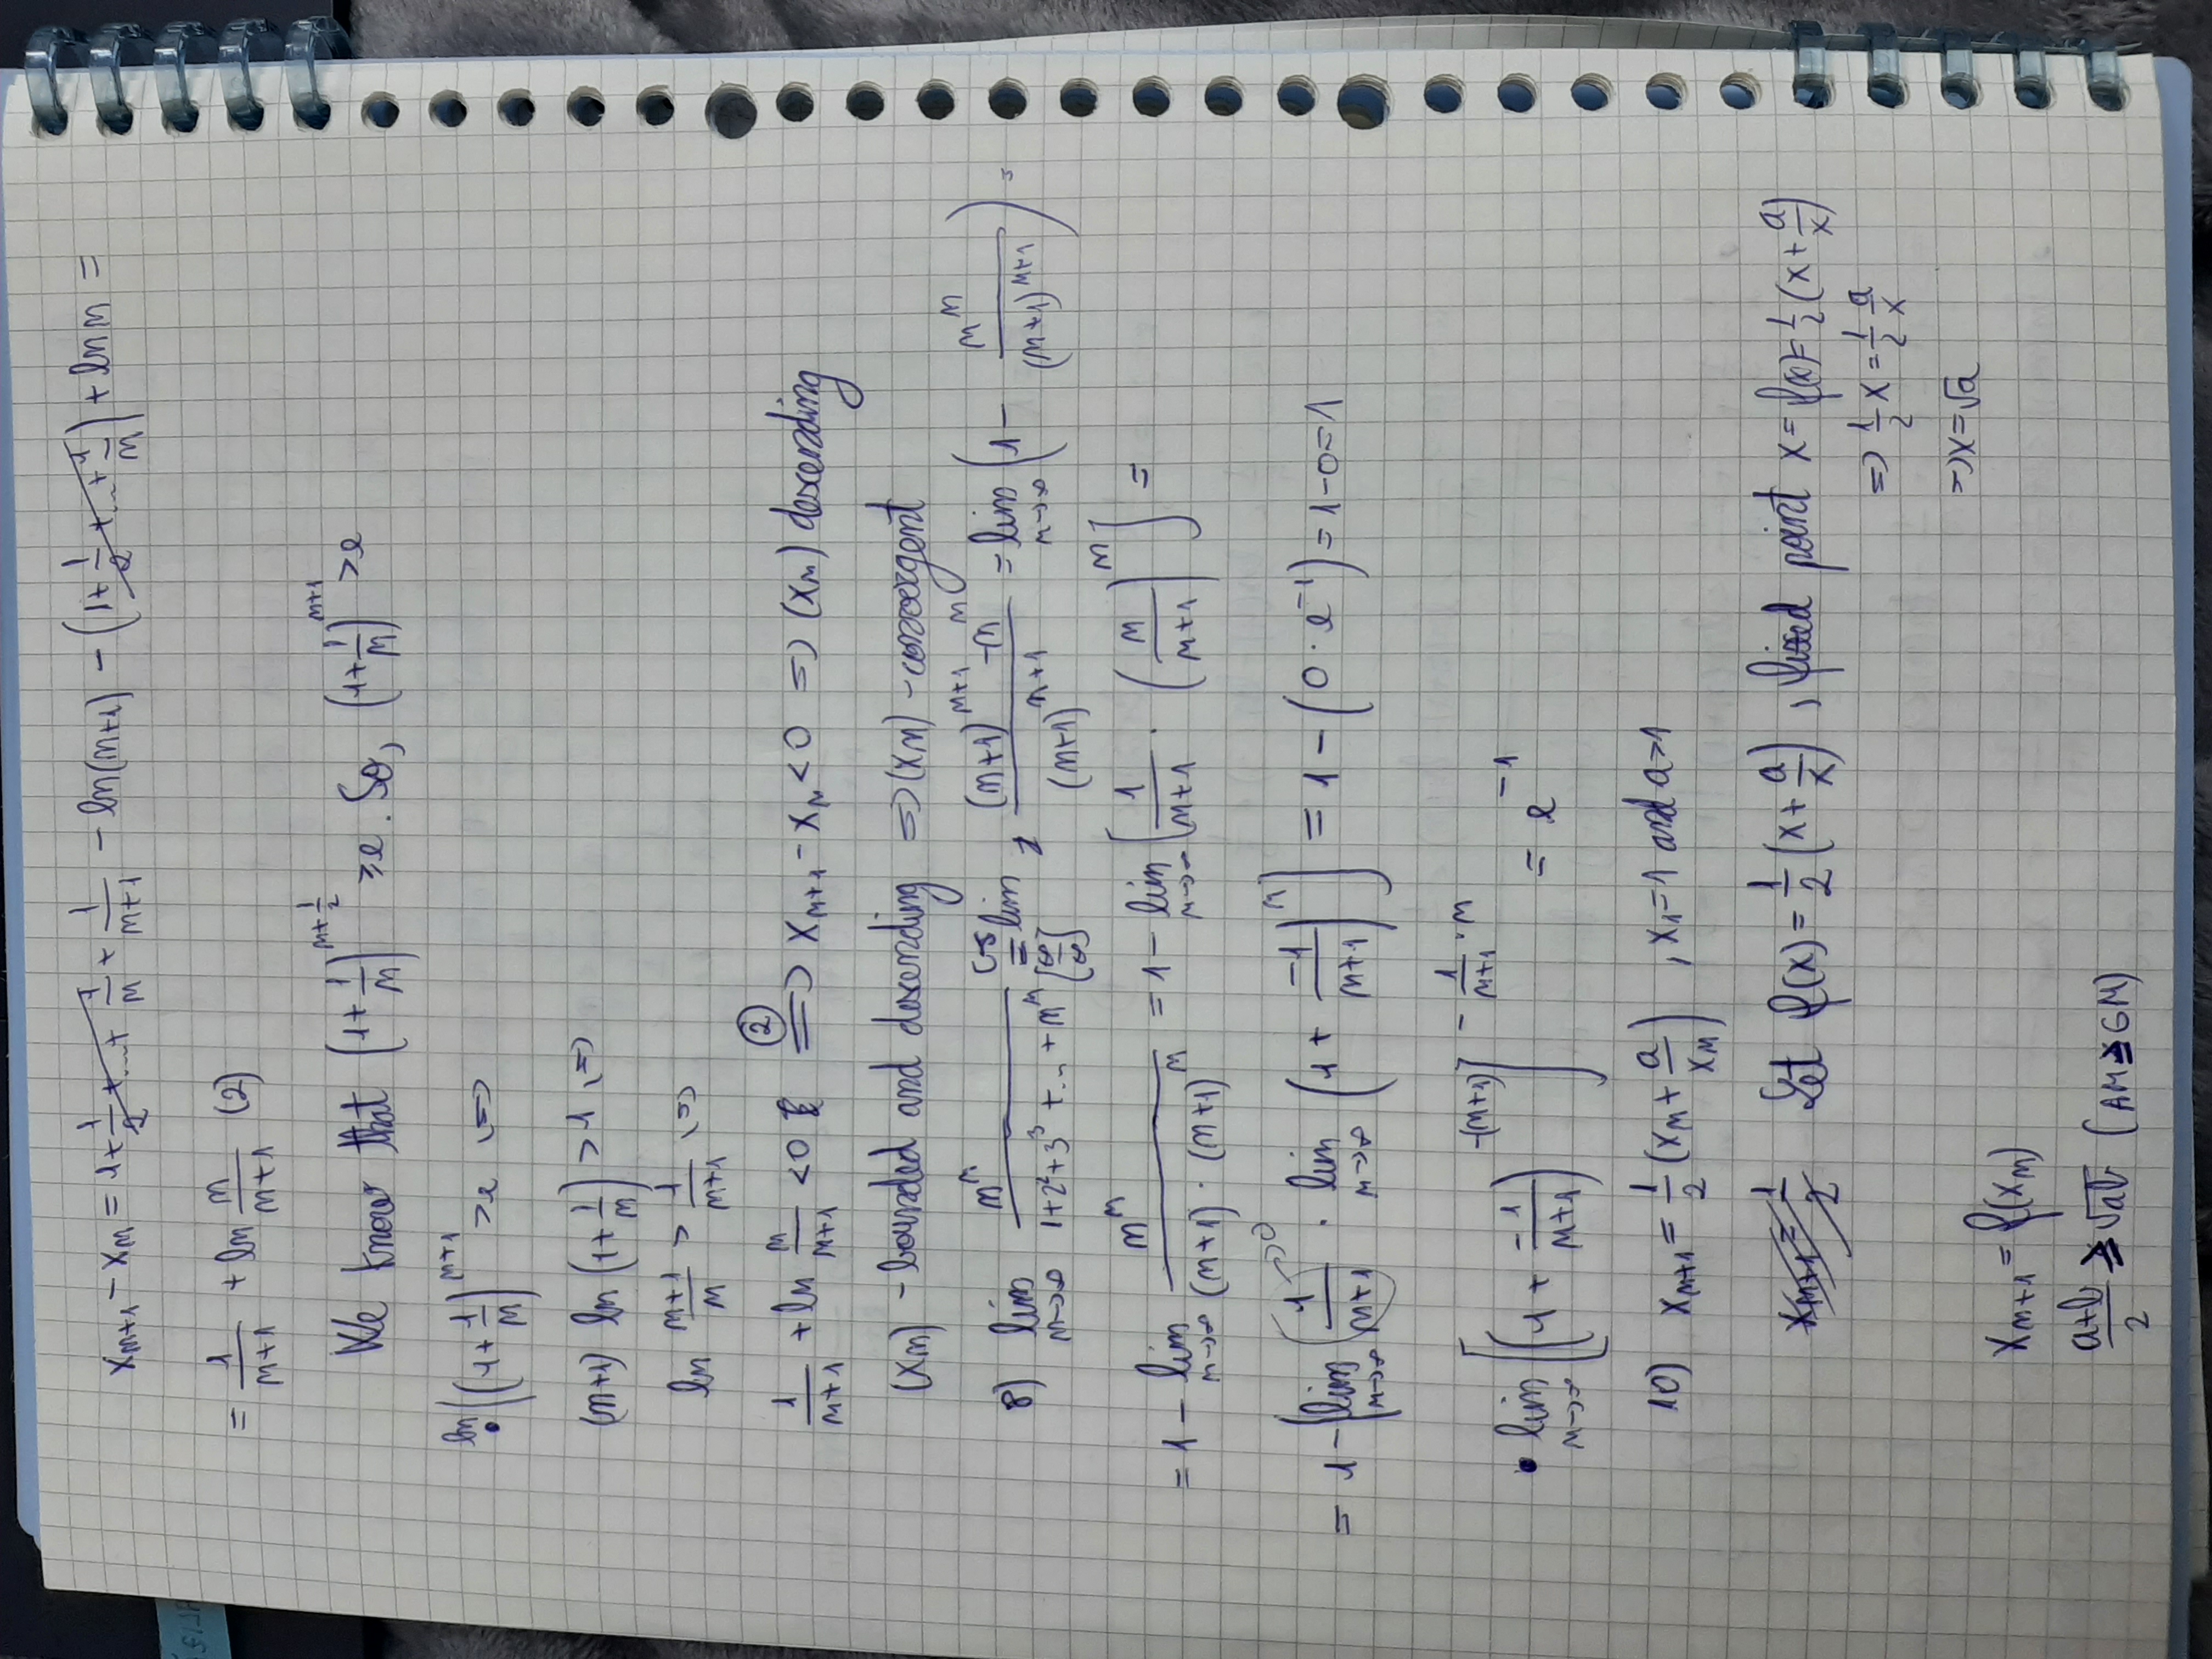 x_{n+1} - x_n = 1 + 1/2 + ... + 1/n + 1/(n+1) - ln(n+1) - (1 + 1/2 + ... + 1/n) + ln n =
= 1/(n+1) + ln n/(n+1) (2)
We know that (1 + 1/n)^{n + 1/2} ≥ e. So, (1 + 1/n)^{n+1} > e
• ln | (1 + 1/n)^{n+1} > e (=>
(n+1) ln (1 + 1/n) > 1 (=>
ln (n+1)/n > 1/(n+1) (=>
1/(n+1) + ln n/(n+1) < 0 =(2)=> x_{n+1} - x_n < 0 => (x_n) descending
(x_n) - bounded and descending => (x_n) - convergent
8) lim_{n->∞} n^n / (1 + 2^2 + 3^3 + ... + n^n) =^{C-S}_{[∞/∞]} lim ((n+1)^{n+1} - n^n) / (n+1)^{n+1} = lim_{n->∞} (1 - n^n / (n+1)^{n+1}) =
= 1 - lim_{n->∞} n^n / ((n+1) · (n+1)^n) = 1 - lim_{n->∞} [1/(n+1) · (n/(n+1))^n] =
= 1 - [lim_{n->∞} 1/(n+1) ->0 · lim_{n->∞} (1 + -1/(n+1))^n] = 1 - (0 · e^{-1}) = 1 - 0 = 1
• lim_{n->∞} [(1 + -1/(n+1))^{-(n+1)}]^{- 1/(n+1) · n} = e^{-1}
10) x_{n+1} = 1/2 (x_n + a/x_n) , x_1 = 1 and a > 1
x_{n+1} = 1/2 Let f(x) = 1/2 (x + a/x) , fixed point x = f(x) = 1/2 (x + a/x)
=> 1/2 x = 1/2 a/x
=> x = √a
x_{n+1} = f(x_n)
(a+b)/2 ≥ √ab (AM ≥ GM)